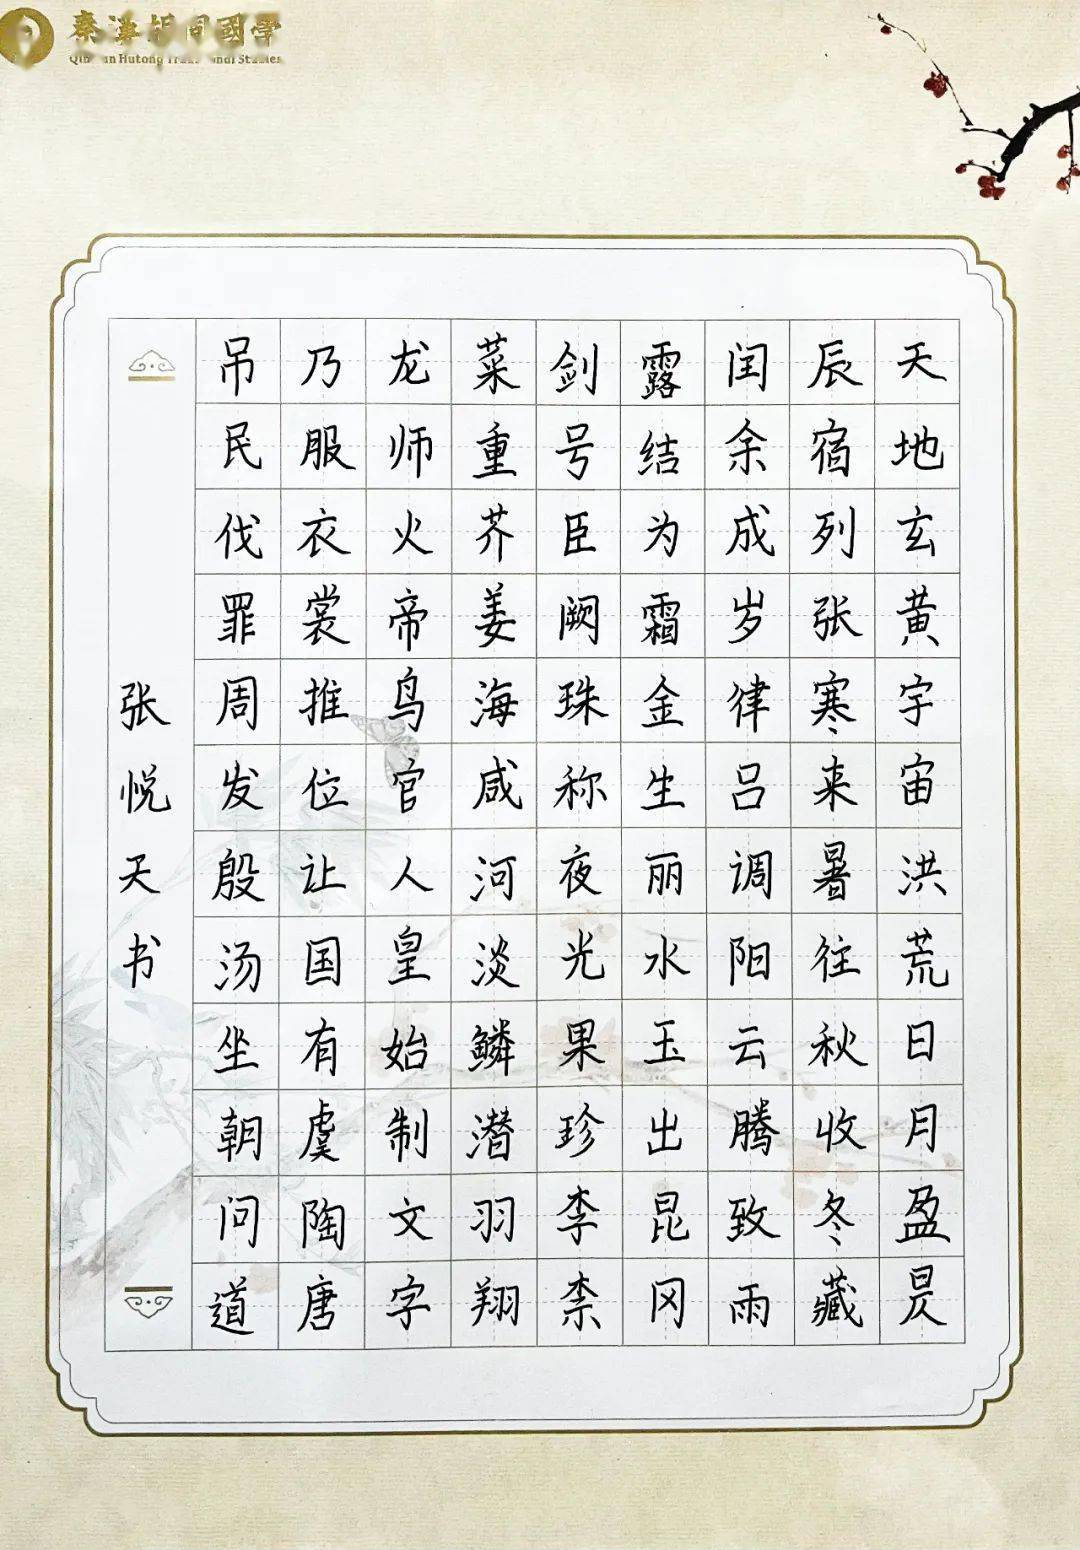 秦漢胡同國學
天地玄黄宇宙洪荒日月盈昃
辰宿列张寒来暑往秋收冬藏
闰余成岁律吕调阳云腾致雨
露结为霜金生丽水玉出昆冈
剑号臣阙珠称夜光果珍李柰
菜重芥姜海咸河淡鳞潜羽翔
龙师火帝鸟官人皇始制文字
乃服衣裳推位让国有虞陶唐
吊民伐罪周发殷汤坐朝问道
张悦天书